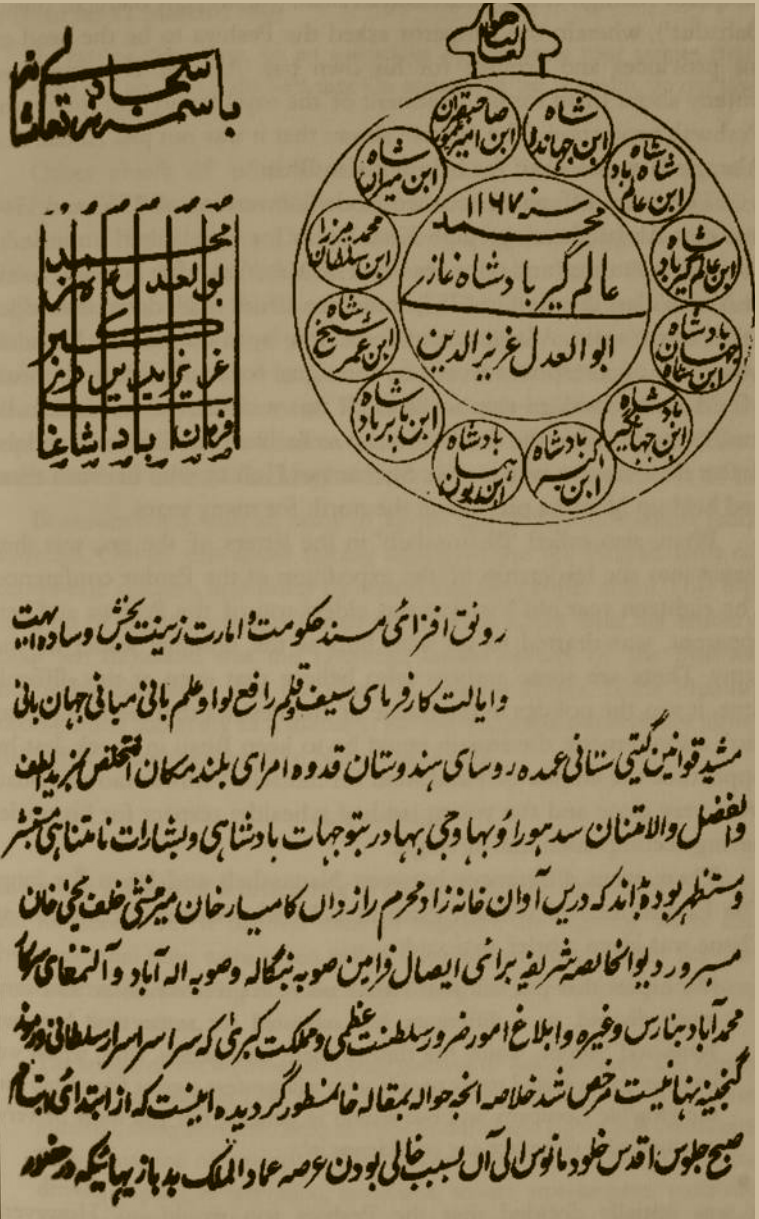 باسمه سبحانه تعالی شانه
محمد
ابوالعدل عزیزالدین
عالمگیر
فرمان بادشاه غا
سنه ۱۱۶۷
محمد
عالم گیر بادشاه غازی
ابو العدل عزیز الدین
ابن شاه عالم بادشاه
ابن عالمگیر بادشاه
ابن شاه جهان بادشاه
ابن جهانگیر بادشاه
ابن اکبر بادشاه
ابن همایون بادشاه
ابن بابر بادشاه
ابن عمر شیخ شاه
ابن سلطان محمد مرزا
ابن میران شاه
ابن امیر تیمور صاحبقران
رونق افزائی مسند حکومت و امارت زینت بخش وساده ابهت
و ایالت کارفرمای سیف و قلم رافع لوا و علم بانی مبانی جهان بانی
مشید قوانین گیتی ستانی عمده روسای هندوستان قدوه امرای بلند مکان المختص بمزید لطف
والفضل والامتنان سدهوراؤ بهاوجی بهادر بتوجهات بادشاهی و بشارات نامتناهی مستبشر
و مستظهر بوده بداند که درین آوان خانه زاد محرم رازداں کامیار خان میر منشی خلف یحیی خان
مبرور دیوان خالصه شریفه برائی ایصال فرامین صوبه بنگاله و صوبه اله آباد و آلتمغای سرکار
محمد آباد بنارس وغیره وابلاغ امور ضرور سلطنت عظمی و مملکت کبری که سراسر اسرار سلطانی و رموز
گنجینه نهانیست مرخص شد خلاصه انچه حواله بمقاله خان منظور گردیده اینست که از ابتدائی ابتسام
صبح جلوس اقدس خلود مانوس الی آن بسبب خالی بودن عرصه عماد الملک بد بازیهائیکه در حضور